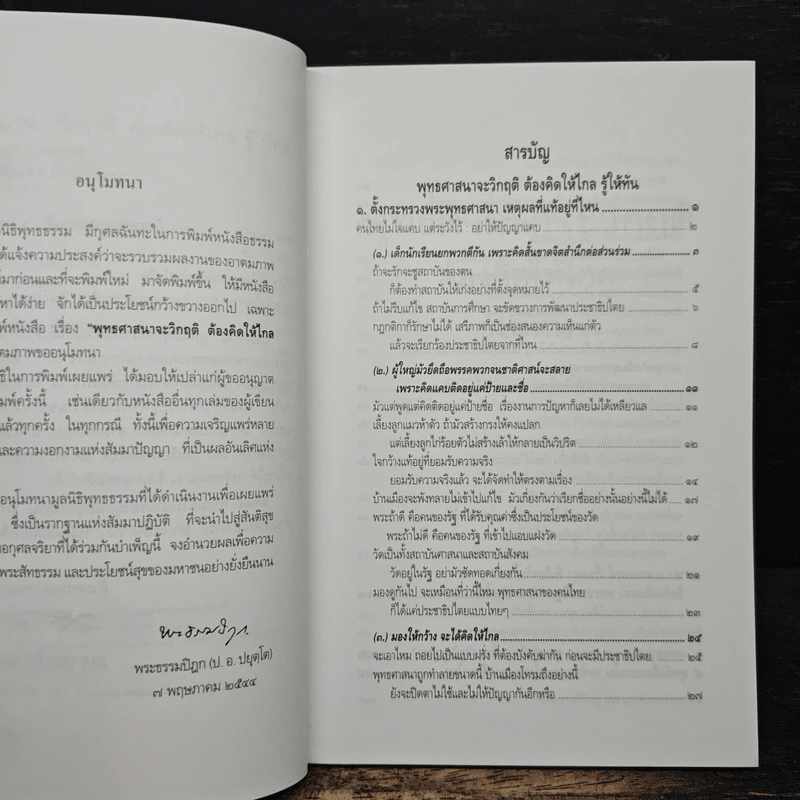 อนุโมทนา
นิธิพุทธธรรม มีกุศลฉันทะในการพิมพ์หนังสือธรรม
ด้แจ้งความประสงค์ว่าจะรวบรวมผลงานของอาตมภาพ
มาก่อนและที่จะพิมพ์ใหม่ มาจัดพิมพ์ขึ้น ให้มีหนังสือ
หาได้ง่าย จักได้เป็นประโยชน์กว้างขวางออกไป เฉพาะ
พ์หนังสือ เรื่อง "พุทธศาสนาจะวิกฤติ ต้องคิดให้ไกล
าตมภาพขออนุโมทนา
ธิในการพิมพ์เผยแพร่ ได้มอบให้เปล่าแก่ผู้ขออนุญาต
พิมพ์ครั้งนี้ เช่นเดียวกับหนังสืออื่นทุกเล่มของผู้เขียน
แล้วทุกครั้ง ในทุกกรณี ทั้งนี้เพื่อความเจริญแพร่หลาย
และความงอกงามแห่งสัมมาปัญญา ที่เป็นผลอันเลิศแห่ง
อนุโมทนามูลนิธิพุทธธรรมที่ได้ดำเนินงานเพื่อเผยแพร่
ซึ่งเป็นรากฐานแห่งสัมมาปฏิบัติ ที่จะนำไปสู่สันติสุข
อกุศลจริยาที่ได้ร่วมกันบำเพ็ญนี้ จงอำนวยผลเพื่อความ
พระสัทธรรม และประโยชน์สุขของมหาชนอย่างยั่งยืนนาน
พระธรรมปิฎก
พระธรรมปิฎก (ป. อ. ปยุตฺโต)
๗ พฤษภาคม ๒๕๔๔
สารบัญ
พุทธศาสนาจะวิกฤติ ต้องคิดให้ไกล รู้ให้ทัน
๑. ตั้งกระทรวงพระพุทธศาสนา เหตุผลที่แท้อยู่ที่ไหน ๑
คนไทยไม่ใจแคบ แต่ระวังไว้ : อย่าให้ปัญญาแคบ ๒
(๑.) เด็กนักเรียนยกพวกตีกัน เพราะคิดสั้นขาดจิตสำนึกต่อส่วนร่วม ๓
ถ้าจะรักจะชูสถาบันของตน
ก็ต้องทำสถาบันให้เก่งอย่างที่ตั้งจุดหมายไว้ ๕
ถ้าไม่รีบแก้ไข สถาบันการศึกษา จะขัดขวางการพัฒนาประชาธิปไตย ๖
กฎกติกาก็รักษาไม่ได้ เสรีภาพก็เป็นช่องสนองความเห็นแก่ตัว
แล้วจะเรียกร้องประชาธิปไตยจากที่ไหน ๘
(๒.) ผู้ใหญ่มัวยึดถือพรรคพวกจนชาติศาสน์จะสลาย
เพราะคิดแคบติดอยู่แค่ป้ายและชื่อ ๑๑
มัวแต่พูดแต่คิดติดอยู่แค่ป้ายชื่อ เรื่องงานการปัญหาก็เลยไม่ได้เหลียวแล ๑๑
เลี้ยงลูกแมวห้าตัว ถ้ามัวสร้างกรงให้คงแปลก
แต่เลี้ยงลูกไก่ร้อยตัวไม่สร้างเล้าให้กลายเป็นวิปริต ๑๒
ใจกว้างแท้อยู่ที่ยอมรับความจริง
ยอมรับความจริงแล้ว จะได้จัดทำให้ตรงตามเรื่อง ๑๔
บ้านเมืองจะพังทลายไม่เข้าไปแก้ไข มัวเกี่ยงกันว่าเรียกชื่ออย่างนั้นอย่างนี้ไม่ได้ ๑๗
พระถ้าดี คือคนของรัฐ ที่ได้รับคุณค่าซึ่งเป็นประโยชน์ของวัด
พระถ้าไม่ดี คือคนของรัฐ ที่เข้าไปแอบแฝงวัด ๑๙
วัดเป็นทั้งสถาบันศาสนาและสถาบันสังคม
วัดอยู่ในรัฐ อย่ามัวซัดทอดเกี่ยงกัน ๒๑
มองดูกันไป จะเหมือนที่ว่านี้ไหม พุทธศาสนาของคนไทย
ก็ได้แค่ประชาธิปไตยแบบไทยๆ ๒๓
(๓.) มองให้กว้าง จะได้คิดให้ไกล ๒๔
จะเอาไหม ถอยไปเป็นแบบฝรั่ง ที่ต้องบังคับฆ่ากัน ก่อนจะมีประชาธิปไตย ๒๕
พุทธศาสนาถูกทำลายขนาดนี้ บ้านเมืองโทรมถึงอย่างนี้
ยังจะปิดตาไม่ใช้และไม่ให้ปัญญากันอีกหรือ ๒๗